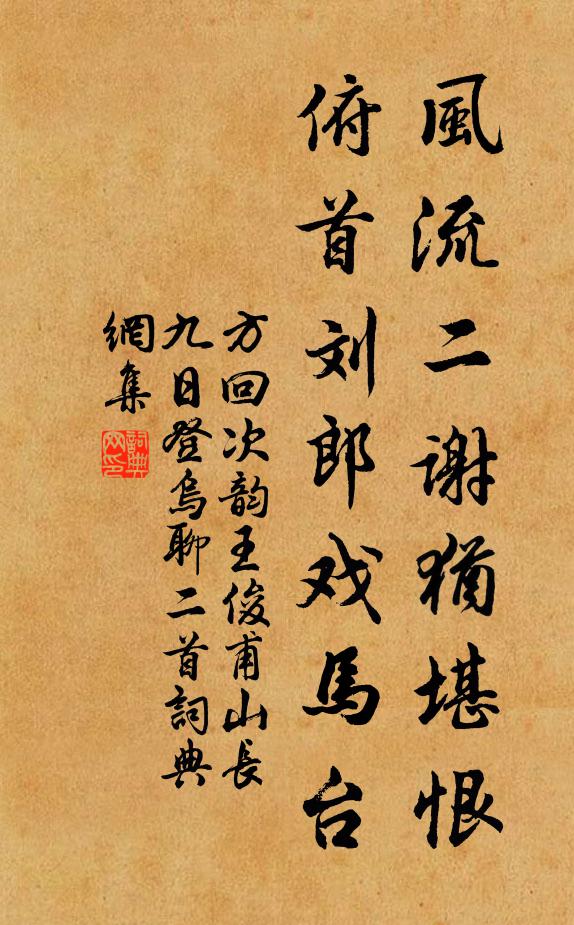 風流二谢猶堪恨
俯首刘郎戏馬台
方回次韵王俊甫山長
九日登烏聊二首詞典
網集
詞典
网印